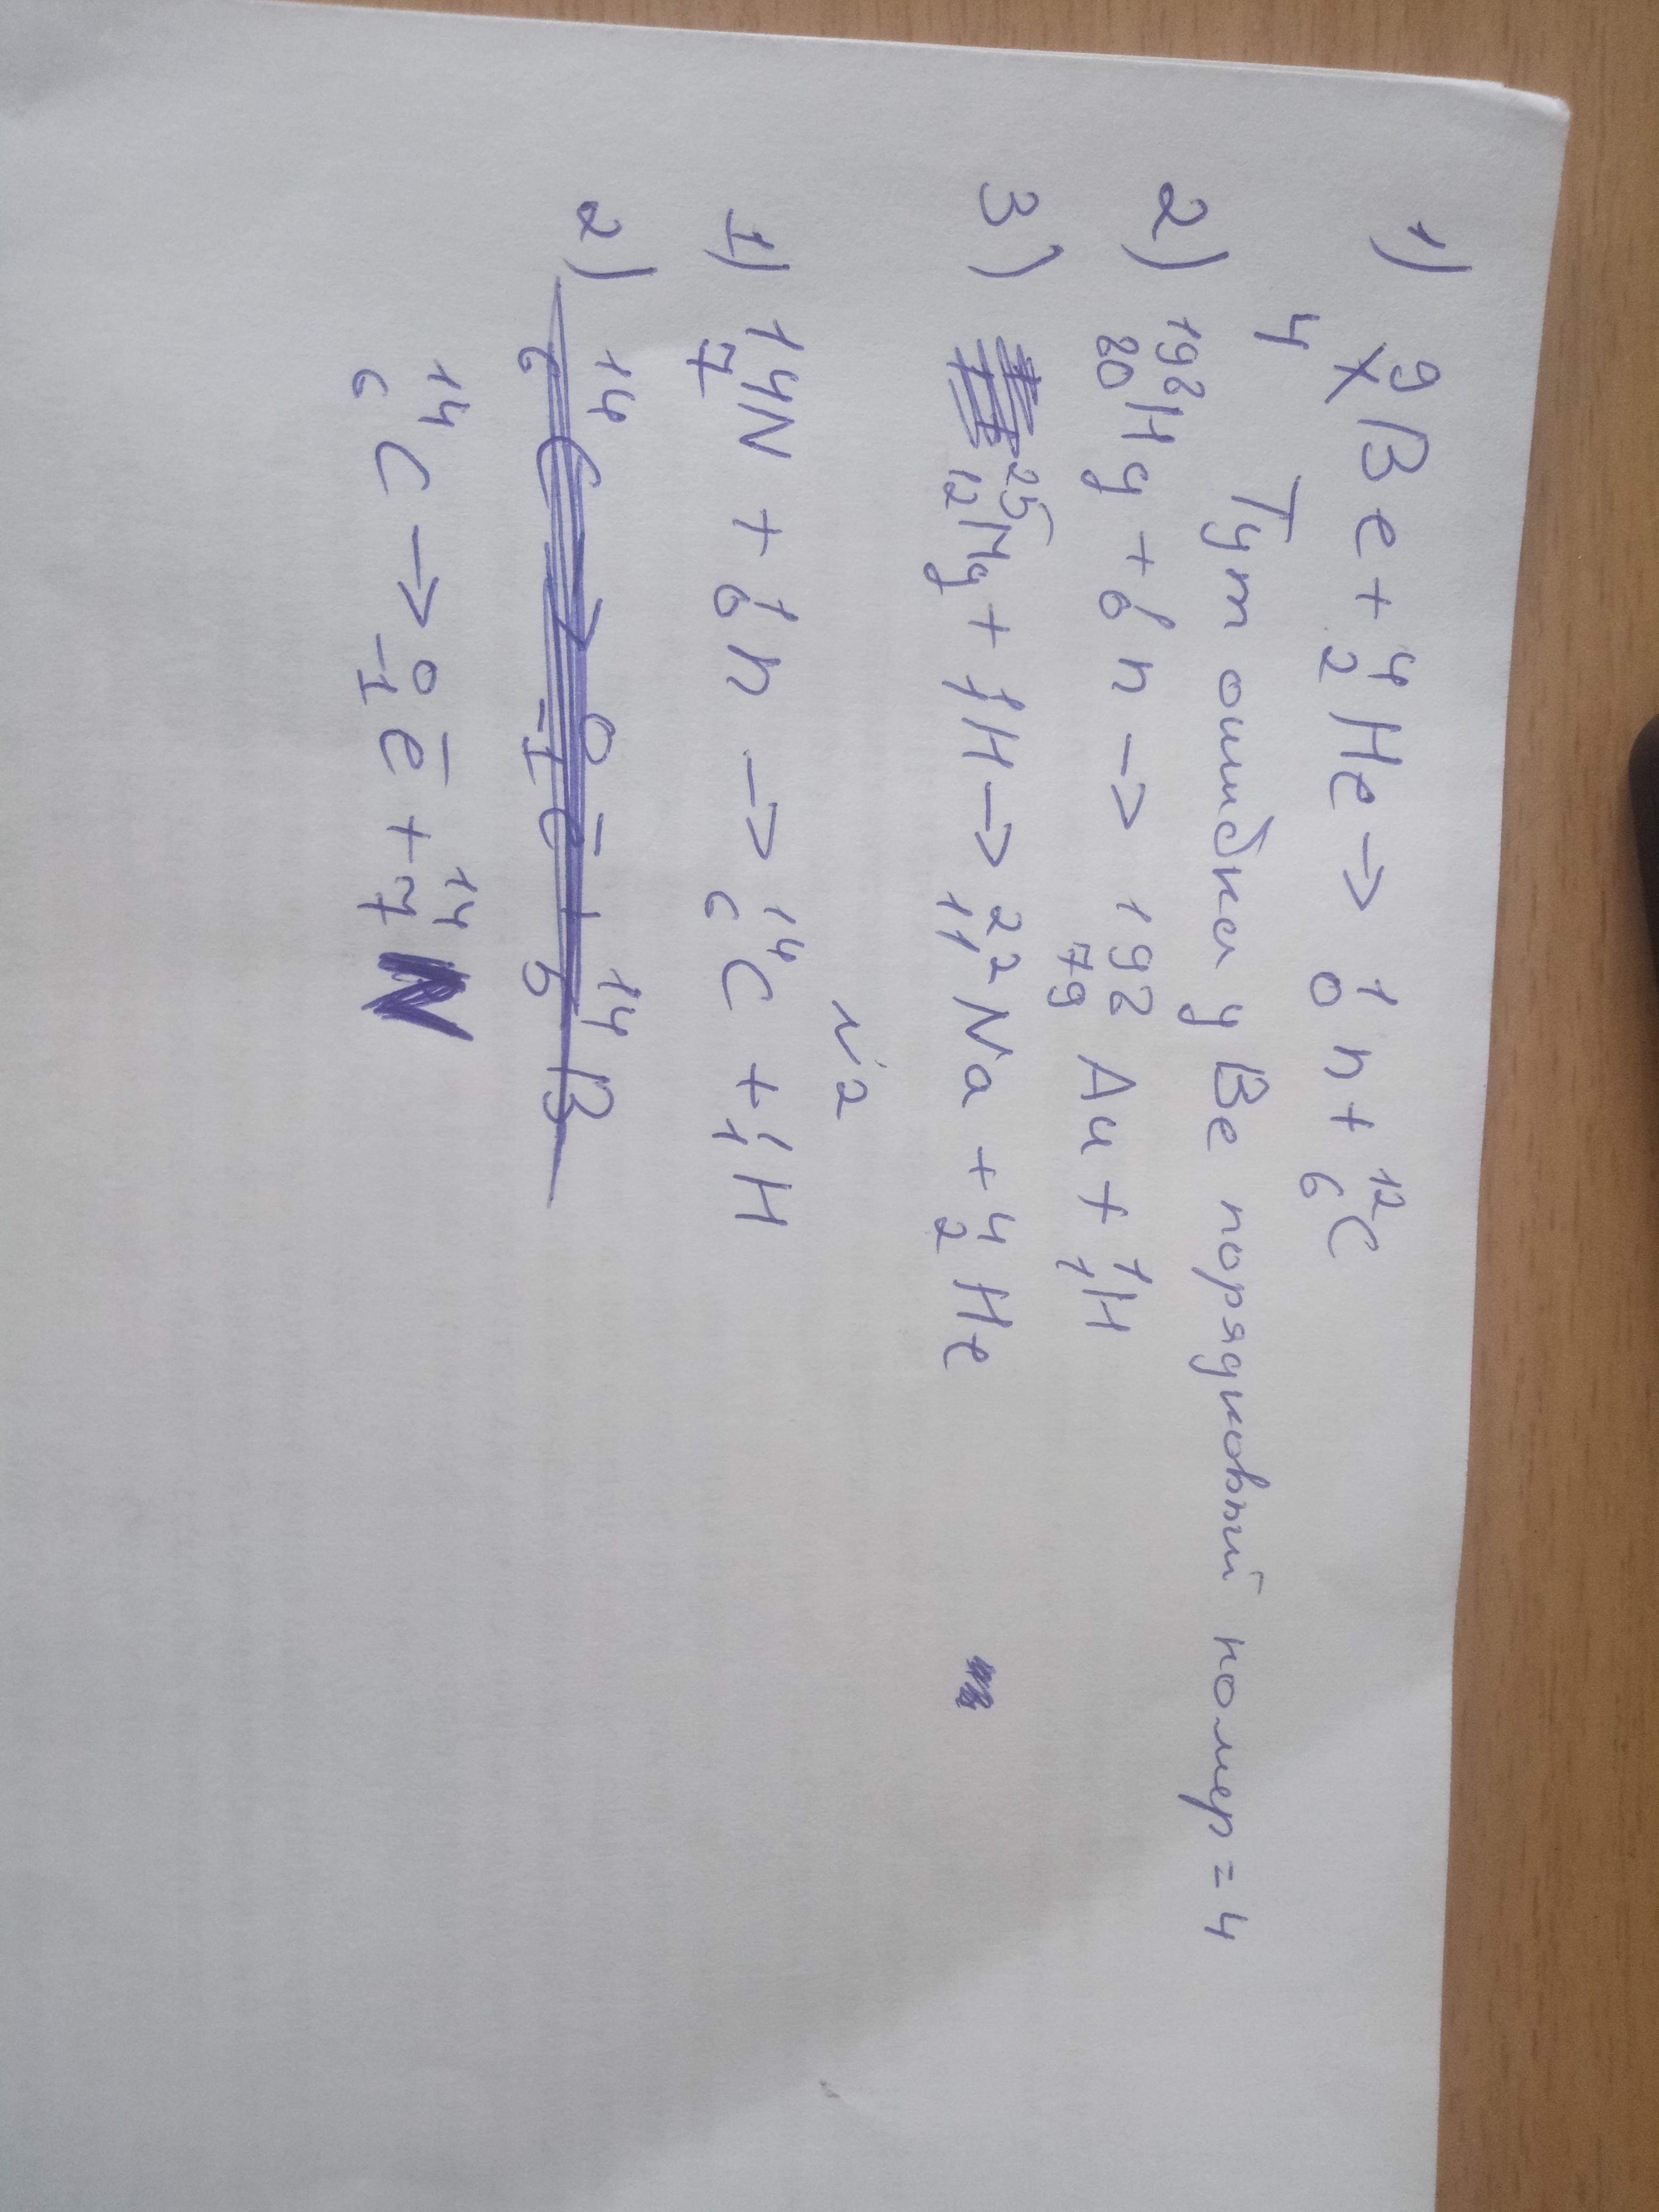 1) ⁹ₓBe + ⁴₂He → ¹₀n + ¹²₆C
4
Тут ошибка у Be порядковый номер = 4
2) ¹⁹²₈₀Hg + ¹₀n → ¹⁹²₇₉Au + ¹₁H
3) ²⁵₁₂Mg + ¹₁H → ²²₁₁Na + ⁴₂He
N2
1) ¹⁴₇N + ¹₀n → ¹⁴₆C + ¹₁H
2) ¹⁴₆C → ⁰₋₁e̅ + ¹⁴₅B
¹⁴₆C → ⁰₋₁e̅ + ¹⁴₇N